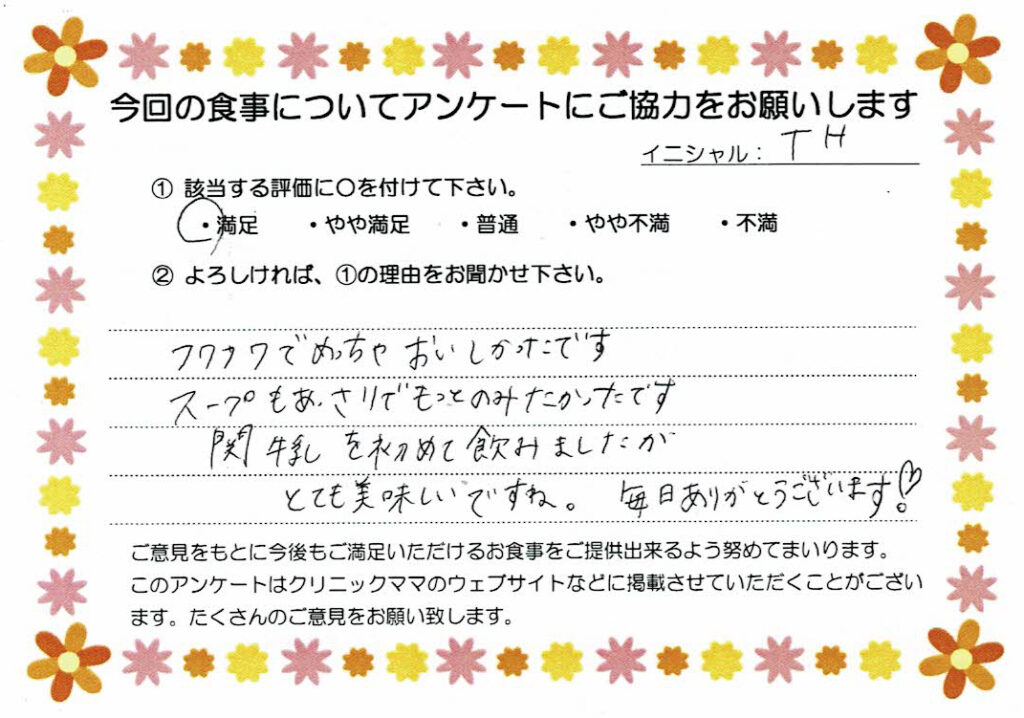 今回の食事についてアンケートにご協力をお願いします
イニシャル： TH
① 該当する評価に〇を付けて下さい。
・満足 ・やや満足 ・普通 ・やや不満 ・不満
② よろしければ、①の理由をお聞かせ下さい。
フワフワでめっちゃおいしかったです
スープもあっさりでもっとのみたかったです
関牛乳を初めて飲みましたが
とても美味しいですね。 毎日ありがとうございます!♡
ご意見をもとに今後もご満足いただけるお食事をご提供出来るよう努めてまいります。
このアンケートはクリニックママのウェブサイトなどに掲載させていただくことがござい
ます。たくさんのご意見をお願い致します。